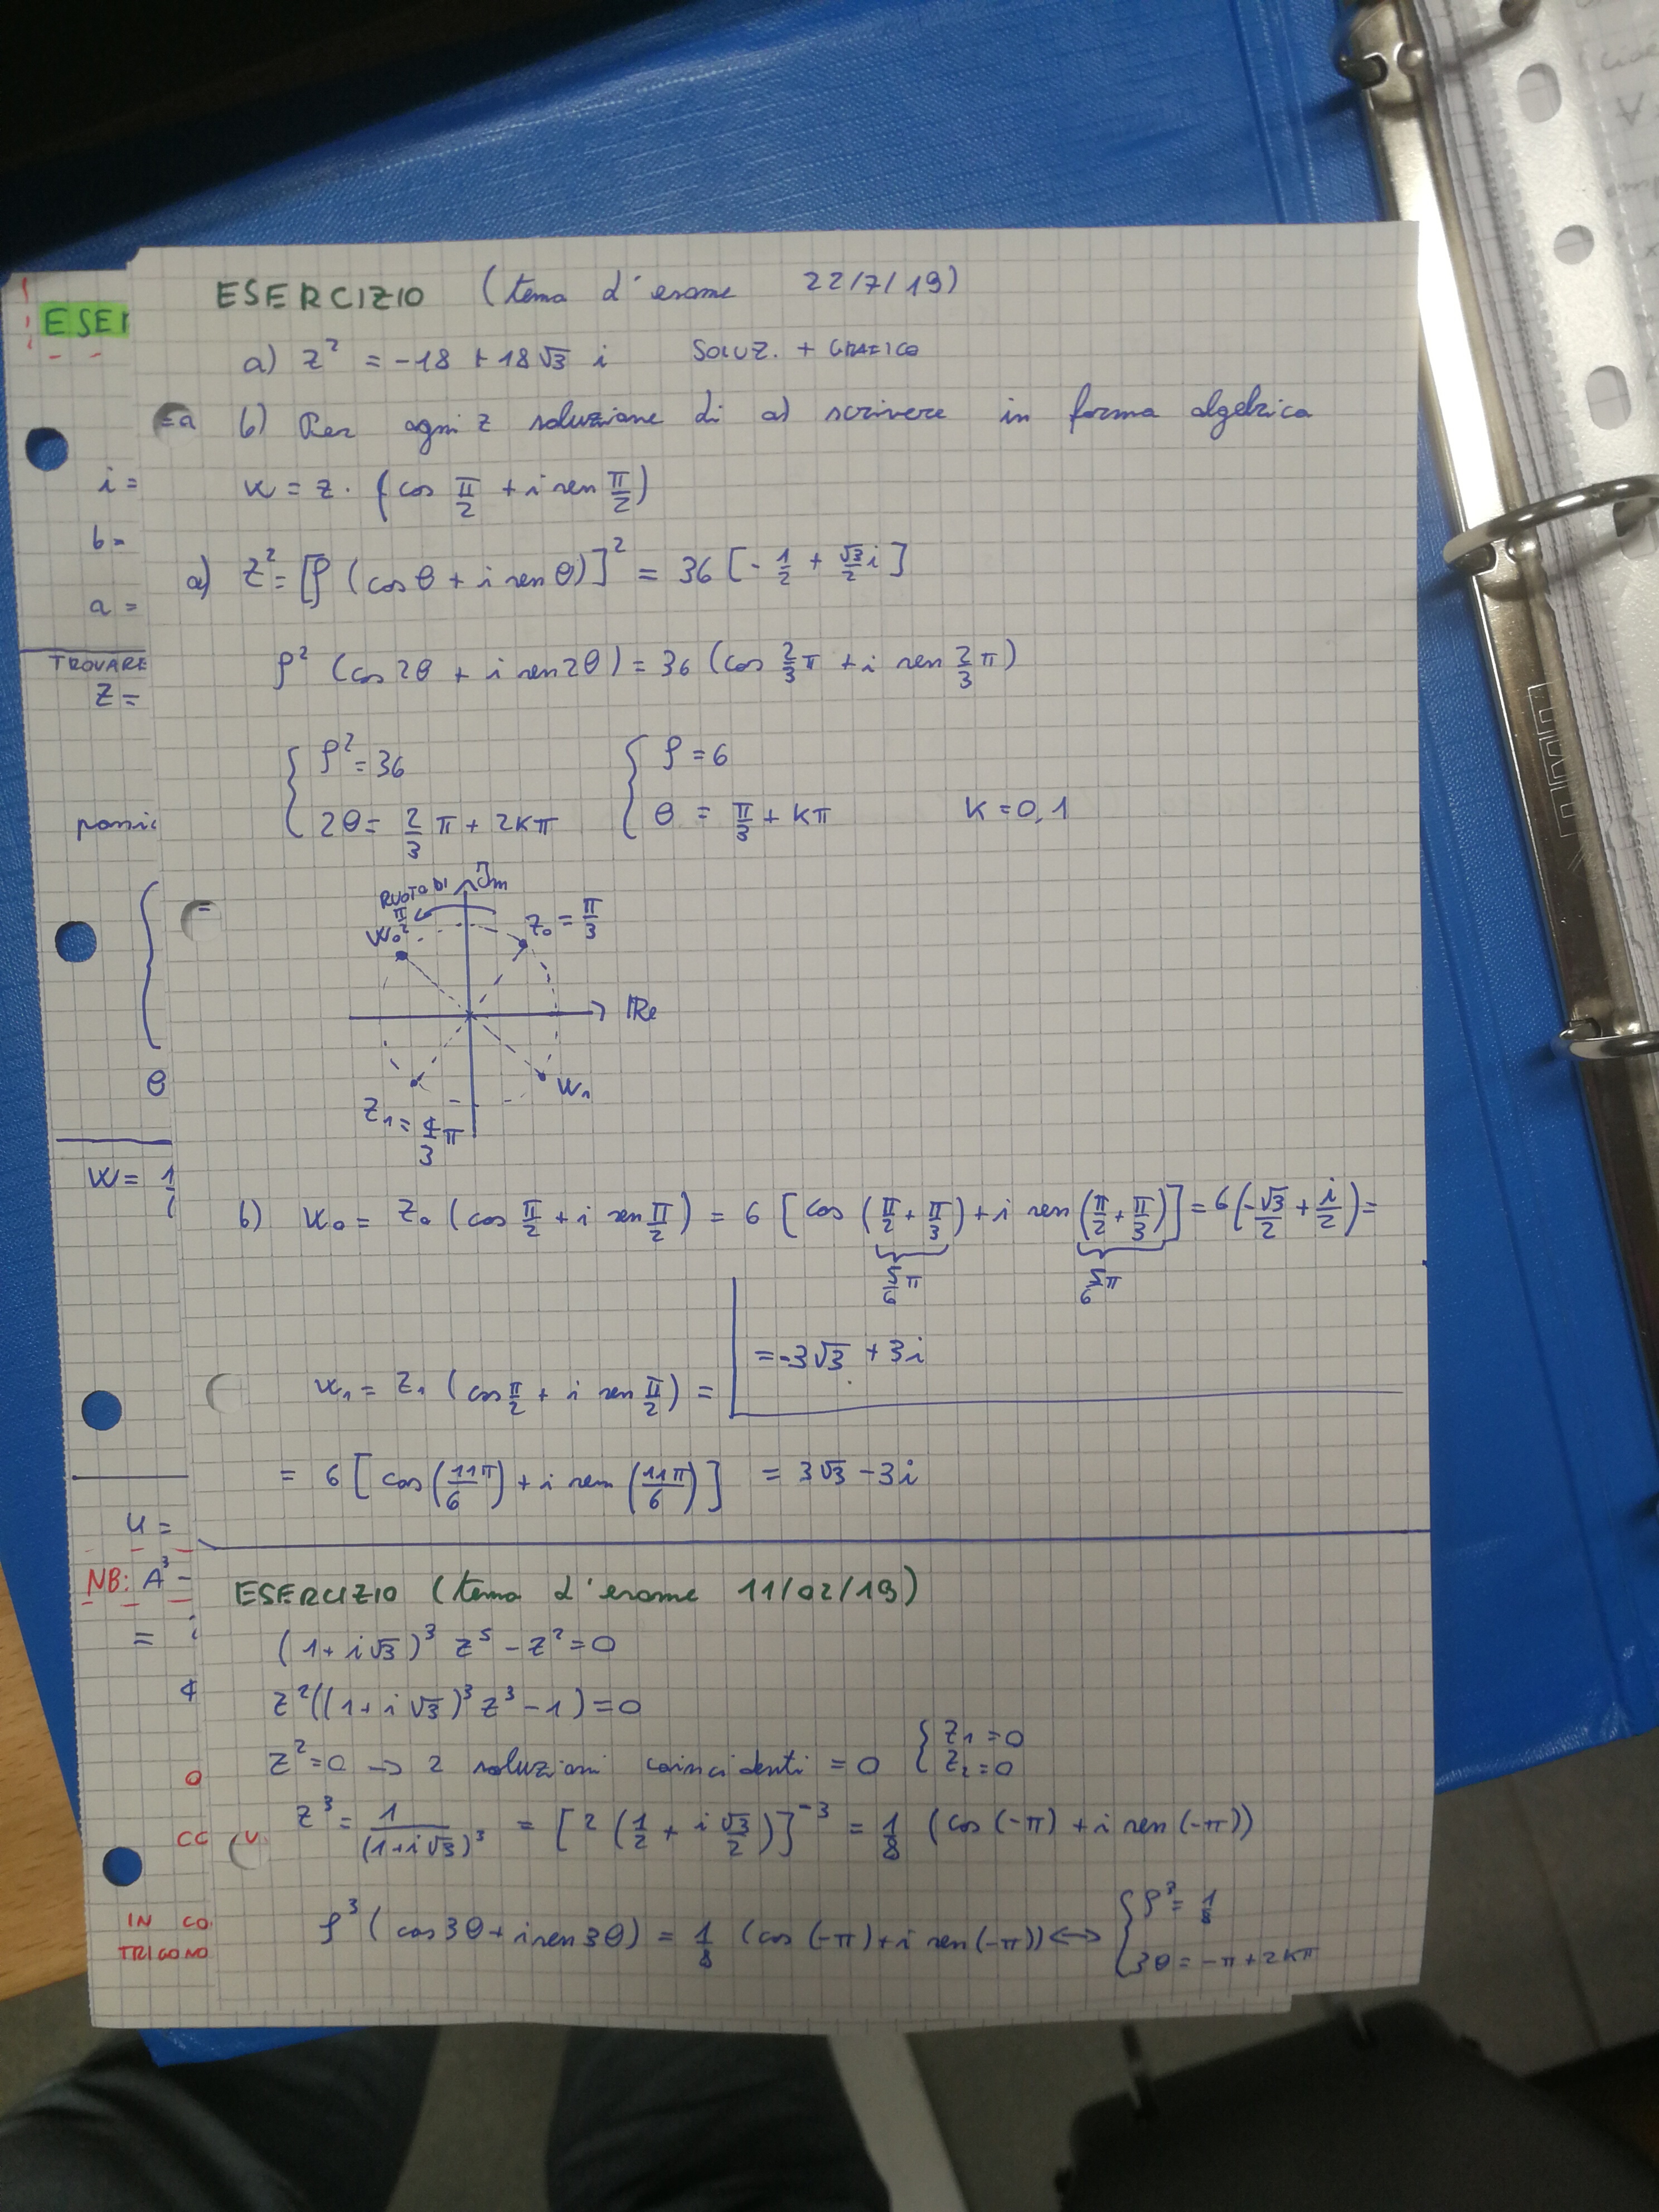 ESERCIZIO (tema d'esame 22/7/19)
a) z² = -18 + 18√3 i SOLUZ. + GRAFICO
b) Per ogni z soluzione di a) scrivere in forma algebrica
w = z · (cos π/2 + i sen π/2)
a) z² = [ρ (cos θ + i sen θ)]² = 36 [-1/2 + √3/2 i]
ρ² (cos 2θ + i sen 2θ) = 36 (cos 2/3 π + i sen 2/3 π)
{ ρ² = 36 { ρ = 6
2θ = 2/3 π + 2kπ θ = π/3 + kπ K = 0,1
RUOTO DI π/2
Im
W₀
Z₀ = π/3
Re
W₁
Z₁ = 4/3 π
b) w₀ = z₀ (cos π/2 + i sen π/2) = 6 [cos (π/2 + π/3) + i sen (π/2 + π/3)] = 6 (-√3/2 + i/2) =
5/6 π 5/6 π
= -3√3 + 3i
w₁ = z₁ (cos π/2 + i sen π/2) =
= 6 [cos (11π/6) + i sen (11π/6)] = 3√3 - 3i
ESERCIZIO (tema d'esame 11/02/19)
(1 + i√3)³ z⁵ - z² = 0
z² ((1 + i√3)³ z³ - 1) = 0
z² = 0 → 2 soluzioni coincidenti = 0 { z₁ = 0 z₂ = 0
z³ = 1/(1+i√3)³ = [2 (1/2 + i √3/2)]⁻³ = 1/8 (cos (-π) + i sen (-π))
ρ³ (cos 3θ + i sen 3θ) = 1/8 (cos (-π) + i sen (-π)) ↔ { ρ³ = 1/8
3θ = -π + 2kπ
ESER
= a
i =
b =
a =
TROVARE
Z =
θ
W = 1
u =
NB: A³ -
=
IN CO
TRIGONO